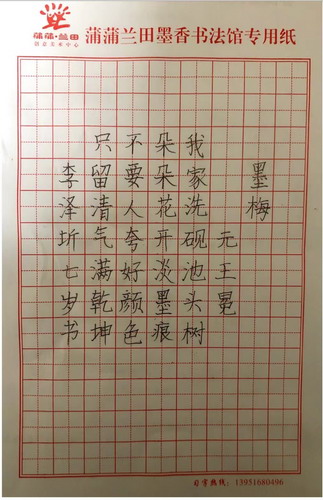 蒲蒲·兰田
创意美术中心
蒲蒲兰田墨香书法馆专用纸
墨梅
元王冕
我家洗砚池头树
朵朵花开淡墨痕
不要人夸好颜色
只留清气满乾坤
李泽圻七岁书
习字热线：13951680496